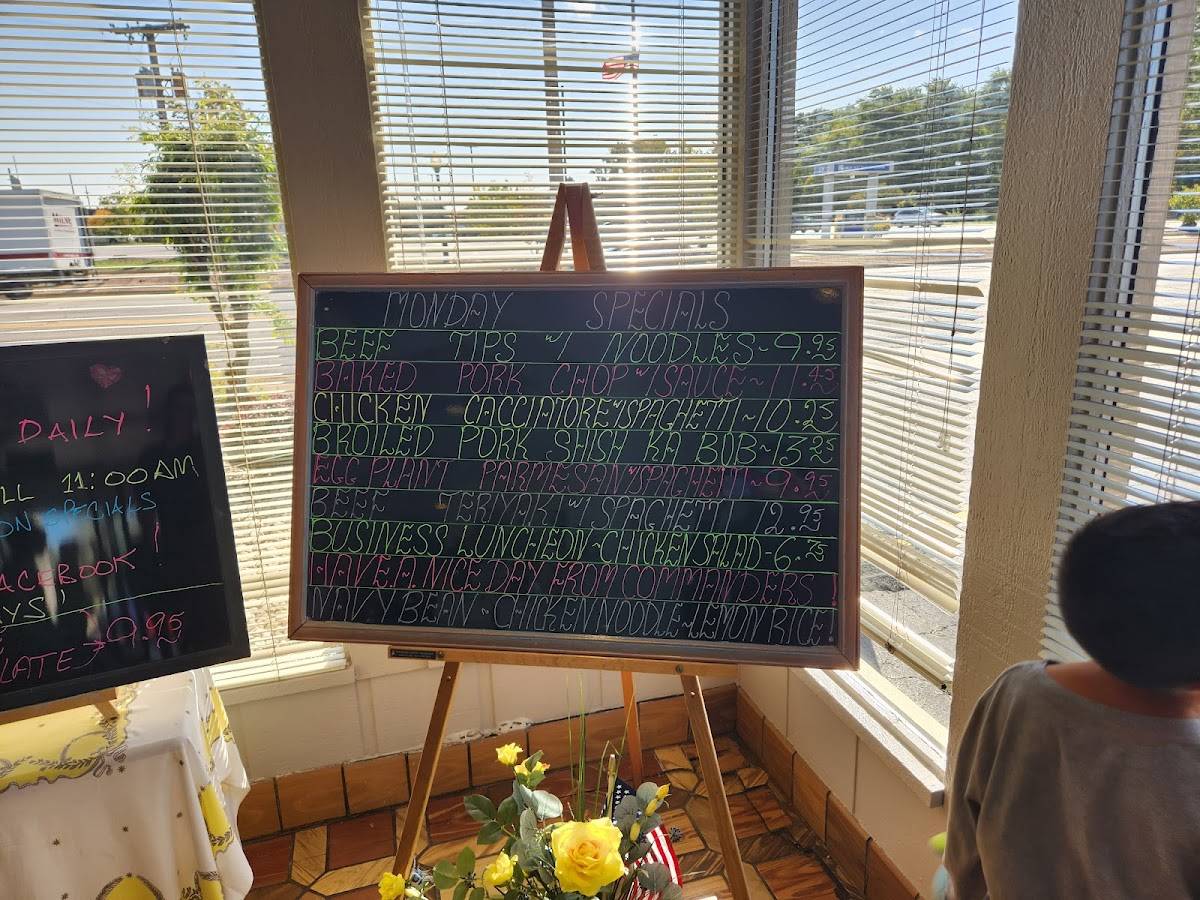 MONDAY SPECIALS
BEEF TIPS W/ NOODLES~9.95
BAKED PORK CHOP W/SAUCE~11.45
CHICKEN CACCIATORE W/SPAGHETTI~10.25
BROILED PORK SHISH KA BOB~13.25
EGG PLANT PARMESAN W/SPAGHETTI~9.95
BEEF TERIYAKI W/ SPAGHETTI 12.95
BUSINESS LUNCHEON~CHICKEN SALAD-6.75
HAVE.A.NICE DAY FROM COMMANDERS!
NAVY BEAN~CHICKEN NOODLE~LEMON RICE
DAILY!
LL 11:00AM
ON SPECIALS
ACEBOOK!
AYS!
9.95
LATE